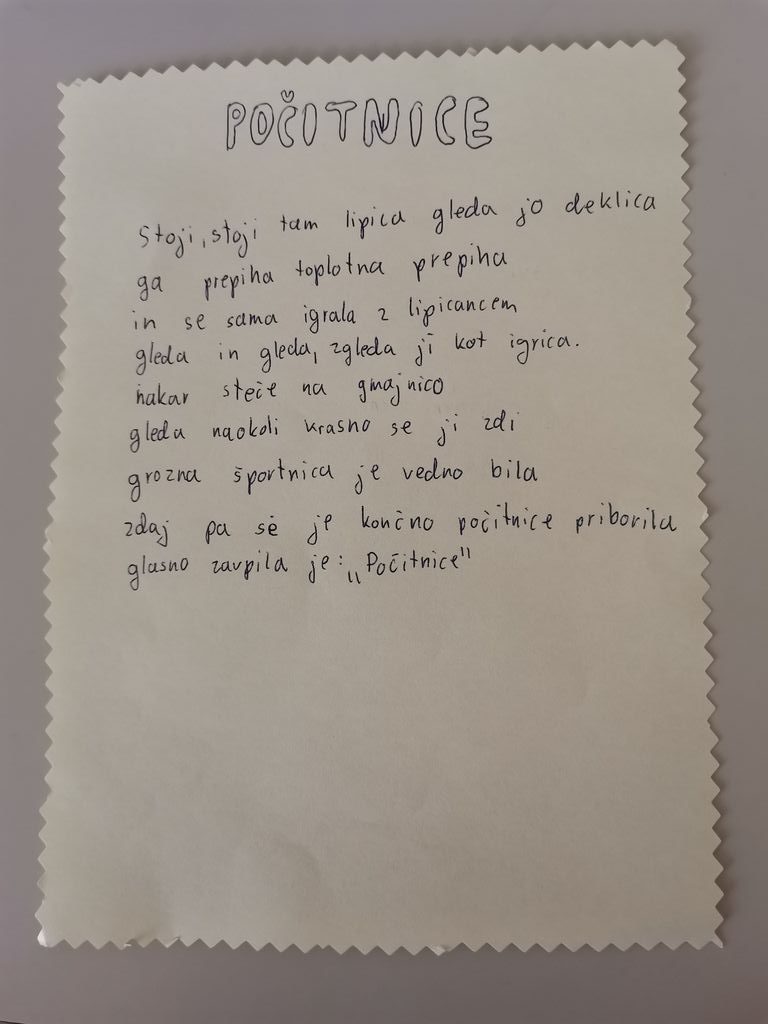 POČITNICE
Stoji, stoji tam lipica gleda jo deklica
ga prepiha toplotna prepiha
in se sama igrala z lipicancem
gleda in gleda, zgleda ji kot igrica.
nakar steče na gmajnico
gleda naokoli krasno se ji zdi
grozna športnica je vedno bila
zdaj pa se je končno počitnice priborila
glasno zavpila je: „Počitnice"